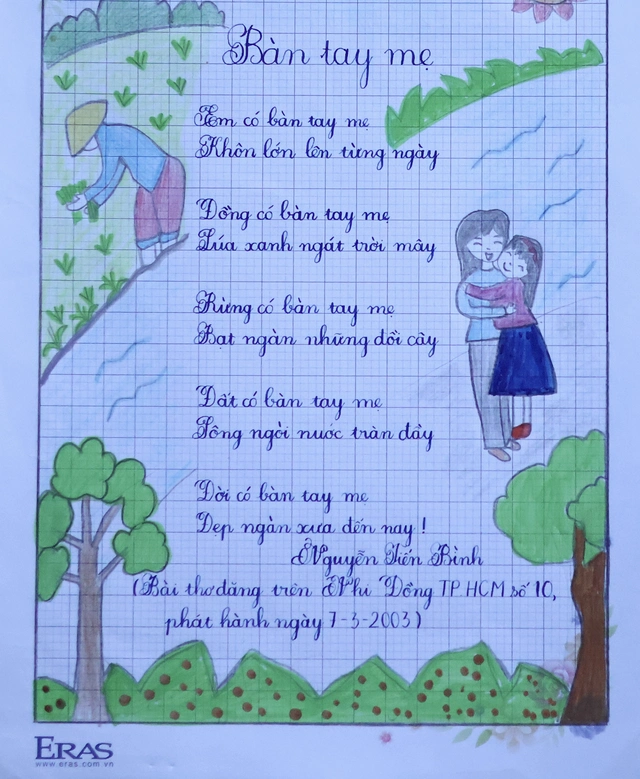 Bàn tay mẹ
Em có bàn tay mẹ
Khôn lớn lên từng ngày
Đồng có bàn tay mẹ
Lúa xanh ngát trời mây
Rừng có bàn tay mẹ
Bạt ngàn những đồi cây
Đất có bàn tay mẹ
Sông ngòi nước tràn đầy
Đời có bàn tay mẹ
Đẹp ngàn xưa đến nay !
Nguyễn Tiến Bình
(Bài thơ đăng trên Nhi Đồng TP HCM số 10,
phát hành ngày 7-3-2003)
ERAS
www.eras.com.vn